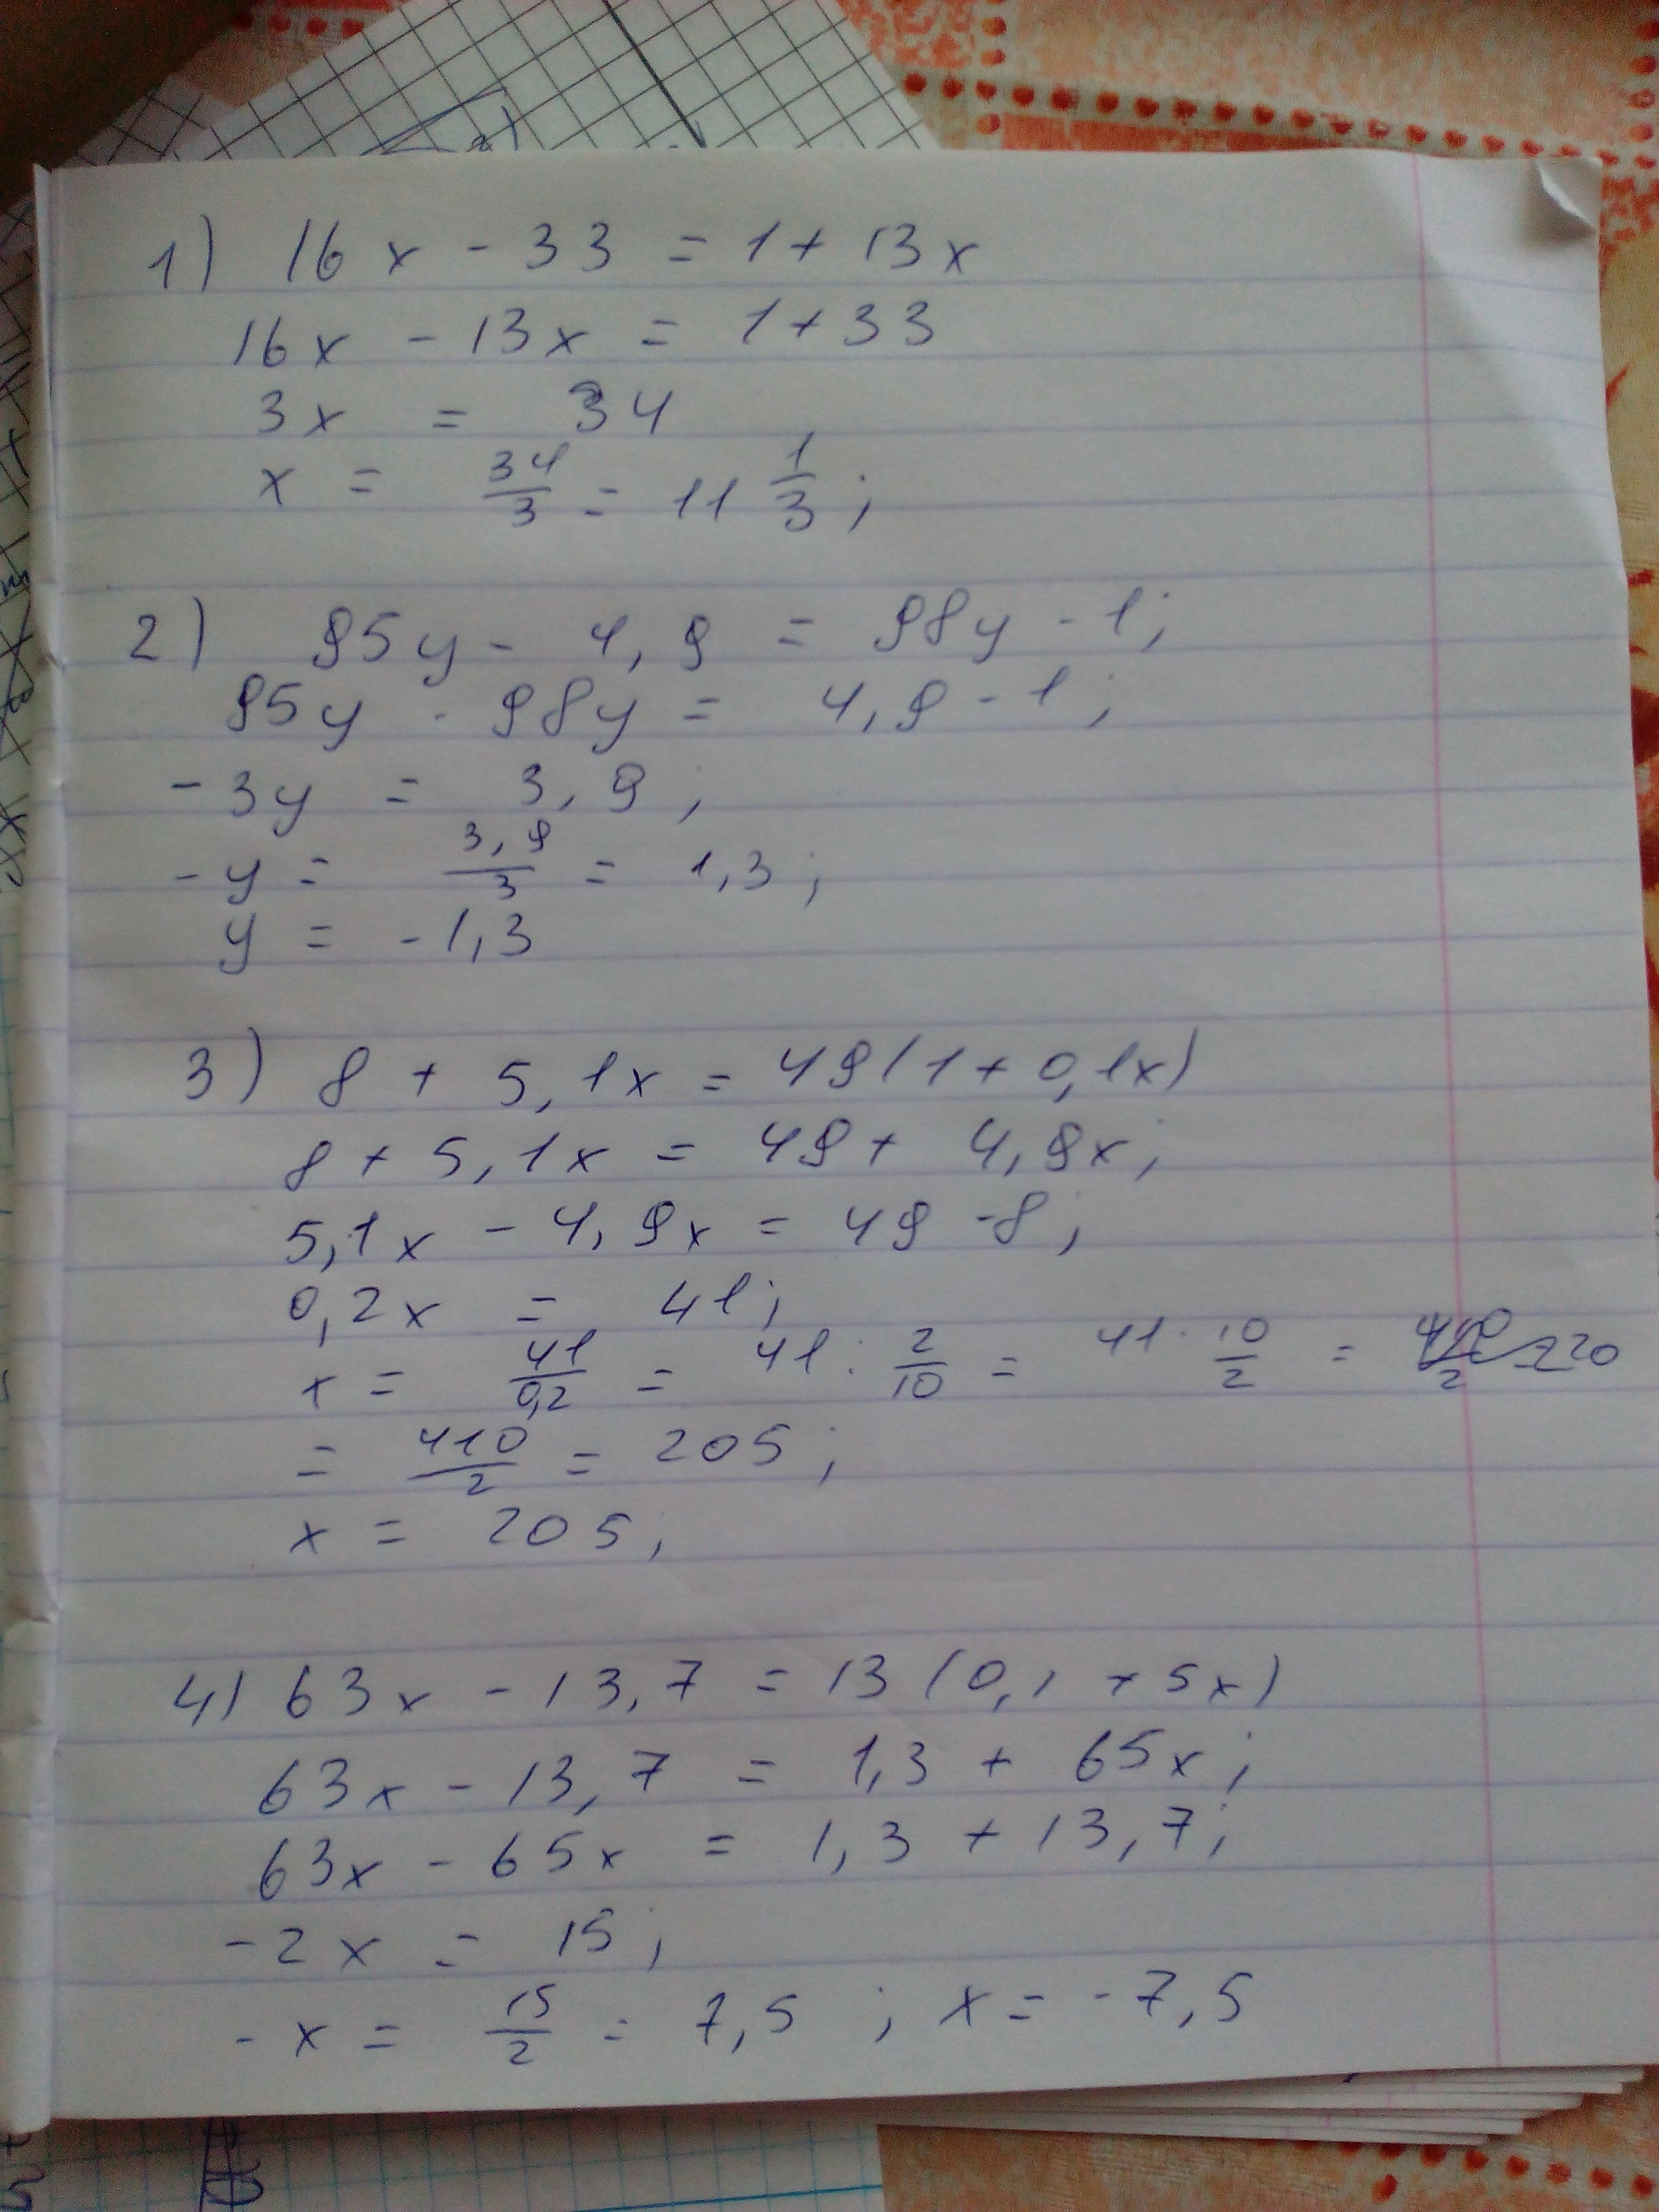 1) 16x - 33 = 1 + 13x
16x - 13x = 1 + 33
3x = 34
x = 34/3 = 11 1/3;
2) 95y - 4,9 = 98y - 1;
95y - 98y = 4,9 - 1;
-3y = 3,9;
-y = 3,9/3 = 1,3;
y = -1,3
3) 8 + 5,1x = 49(1 + 0,1x)
8 + 5,1x = 49 + 4,9x;
5,1x - 4,9x = 49 - 8;
0,2x = 41;
x = 41/0,2 = 41 : 2/10 = 41 · 10/2 =
= 410/2 = 205;
x = 205;
4) 63x - 13,7 = 13(0,1 + 5x)
63x - 13,7 = 1,3 + 65x;
63x - 65x = 1,3 + 13,7;
-2x = 15;
-x = 15/2 = 7,5; x = -7,5